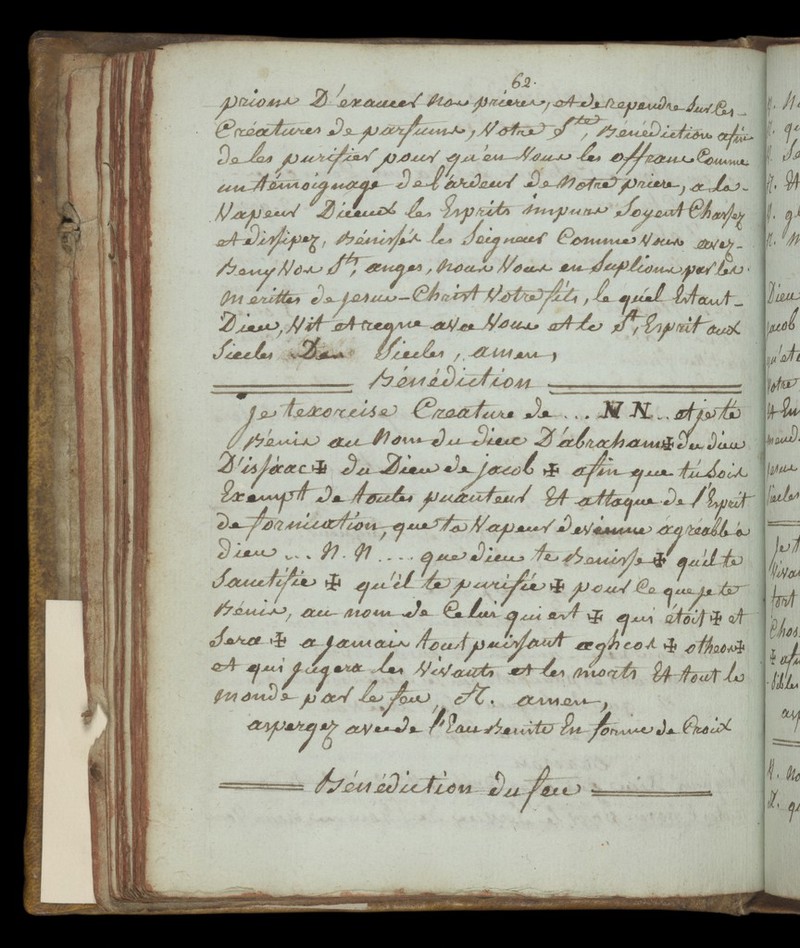 62.
prions D'exaucer nos prieres, et de rependre sur Ces
Créatures de parfums, Votre Ste, Bénédiction afin
de les purifier pour qu'en Vous les offrans Comme
un témoignage de l'ardeur de Notre priere, a la
Vapeur Diceux les Esprits impurs soyent Chassez
et dissipez, Bénissés les Seigneur Comme Vous avez
Beny Vos Sts, anges, nous Vous en Suplions par les
merittes de jesus-Christ Votre fils, le quel Estant
Dieu, Vit et regne avec Vous et le St, Esprit aux
siecles Des siecles, amen,
Bénédiction
je texorcise Creature de ... N N .. et je te
Bénis au Nom du dieu D'abraham ✠ du dieu
D'issaac ✠ du Dieu de jacob ✠ afin que tu sois
Exempt de toutes puanteur Et attaque de l'Esprit
de fornication, que ta Vapeur devienne agreable a
dieu ... N. N .... que dieu te Benisse ✠ qu'il te
Sanctifie ✠ qu'il te purifie ✠ pour Ce que je te
Bénis, au nom de Celui qui est ✠ qui étoit ✠ et
sera ✠ a jamais tout puissant aghios ✠ otheos ✠
et qui jugera les Vivants et les morts Et tout le
monde par le feu, R. amen,
aspergez avec de l'Eau Benite En forme de Croix
Bénédiction du feu
Dieu
jacob